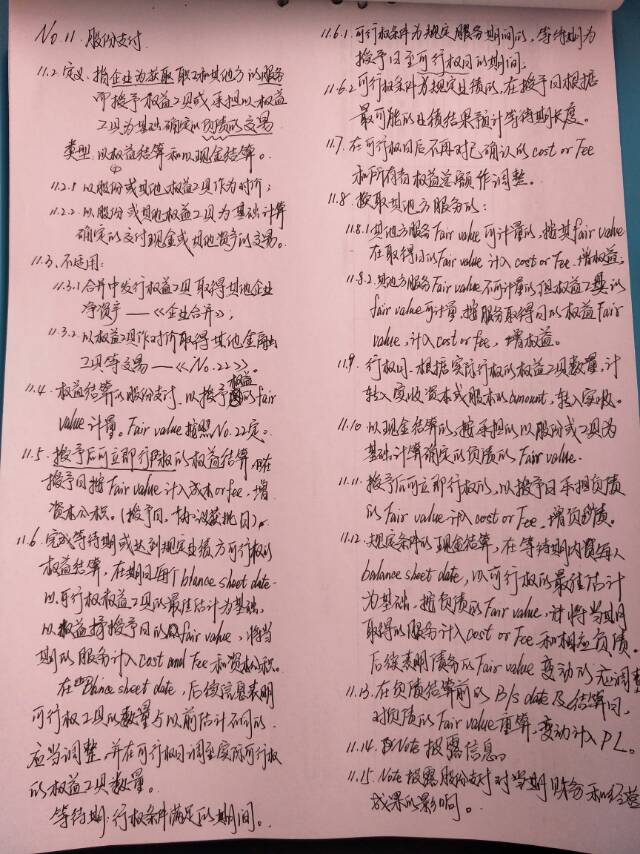 No 11. 股份支付
11.2. 定义. 指企业为获取职工和其他方的服务
而授予权益工具或承担以权益
工具为基础确定的负债的交易
类型. 以权益结算和以现金结算。
11.2.1 以股份或其他权益工具作为对价;
11.2.2. 以股份或其他权益工具为基础计算
确定的交付现金或其他资产的交易。
11.3. 不适用:
11.3.1 合并中发行权益工具取得其他企业
净资产 —《企业合并》;
11.3.2. 以权益工具作对价取得其他金融
工具等交易 —《No.22》。
11.4. 权益结算的股份支付. 以授予权益的fair
value计量。Fair value按照No.22定。
11.5. 授予后可立即行权的权益结算. 在
授予日按Fair value计入成本or fee, 增
资本公积。(授予日. 协议获批日).
11.6. 完成等待期或达到规定业绩方可行权的
权益结算. 在期内每个blance sheet date.
以可行权权益工具的最佳估计为基础,
以权益按授予日的fair value, 将当
期的服务计入cost and Fee和资本公积。
在Blance sheet date, 后续信息表明
可行权工具的数量与以前估计不同的.
应当调整, 并在可行权日调至实际可行权
的权益工具数量。
等待期: 行权条件满足的期间。
11.6.1. 可行权条件为规定服务期间的, 等待期为
授予日至可行权日的期间.
11.6.2. 可行权条件为规定业绩的, 在授予日根据
最可能的业绩结果预计等待期长度。
11.7. 在可行权日后不再对已确认的cost or Fee
和所有者权益总额作调整。
11.8. 换取其他方服务的:
11.8.1. 其他方服务Fair value可计量的, 按其fair value
在取得日的Fair value计入cost or Fee. 增权益;
11.8.2. 其他方服务Fair value不可计量的但权益工具的
fair value可计量, 按服务取得日的权益Fair
value, 计入cost or fee, 增权益。
11.9. 行权日. 根据实际行权的权益工具数量, 计
转入实收资本或股本的amount, 转入实收。
11.10. 以现金结算的, 按承担的以股份或工具为
基础计算确定的负债的Fair value.
11.11. 授予后可立即行权的, 以授予日承担负债
的Fair value计入cost or Fee, 增负债。
11.12. 规定条件的现金结算, 在等待期内每个
balance sheet date, 以可行权的最佳估计
为基础. 按负债的Fair value, 计将当期
取得的服务计入cost or Fee和相应负债。
后续表明债务的Fair value变动的应调整
11.13. 在负债结算前的B/s date及结算日,
对负债的Fair value重算, 变动计入PL。
11.14. Note披露信息。
11.15. Note披露股份支付对当期财务和经营
成果的影响。